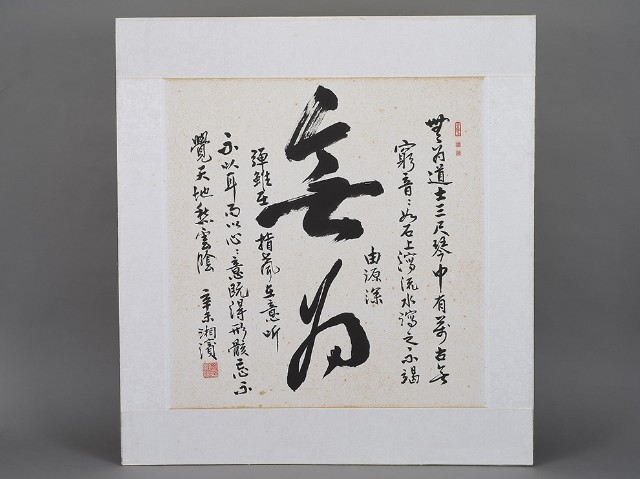 無为道士三尺琴中有萬古無
窮音〻如石上瀉流水瀉之不竭
由源深
無为
弾雖在指聲在意听
不以耳而以心〻意既得形骸忘不
覺天地愁雲陰 辛未湘濱